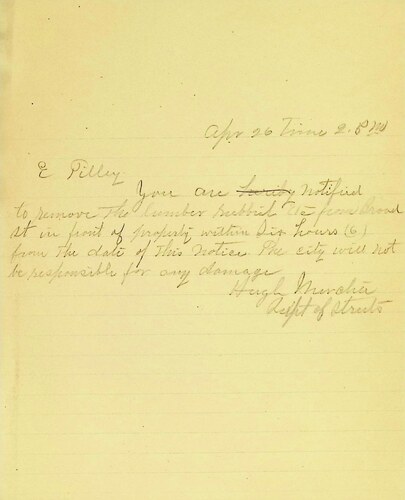 Apr 26 Time 2. P M
E Pilley
You are hereby notified
to remove the lumber rubbil etc from Broad
st in front of property within Six hours (6)
from the date of this notice. The city will not
be responsible for any damage
Hugh
Supt of Streets